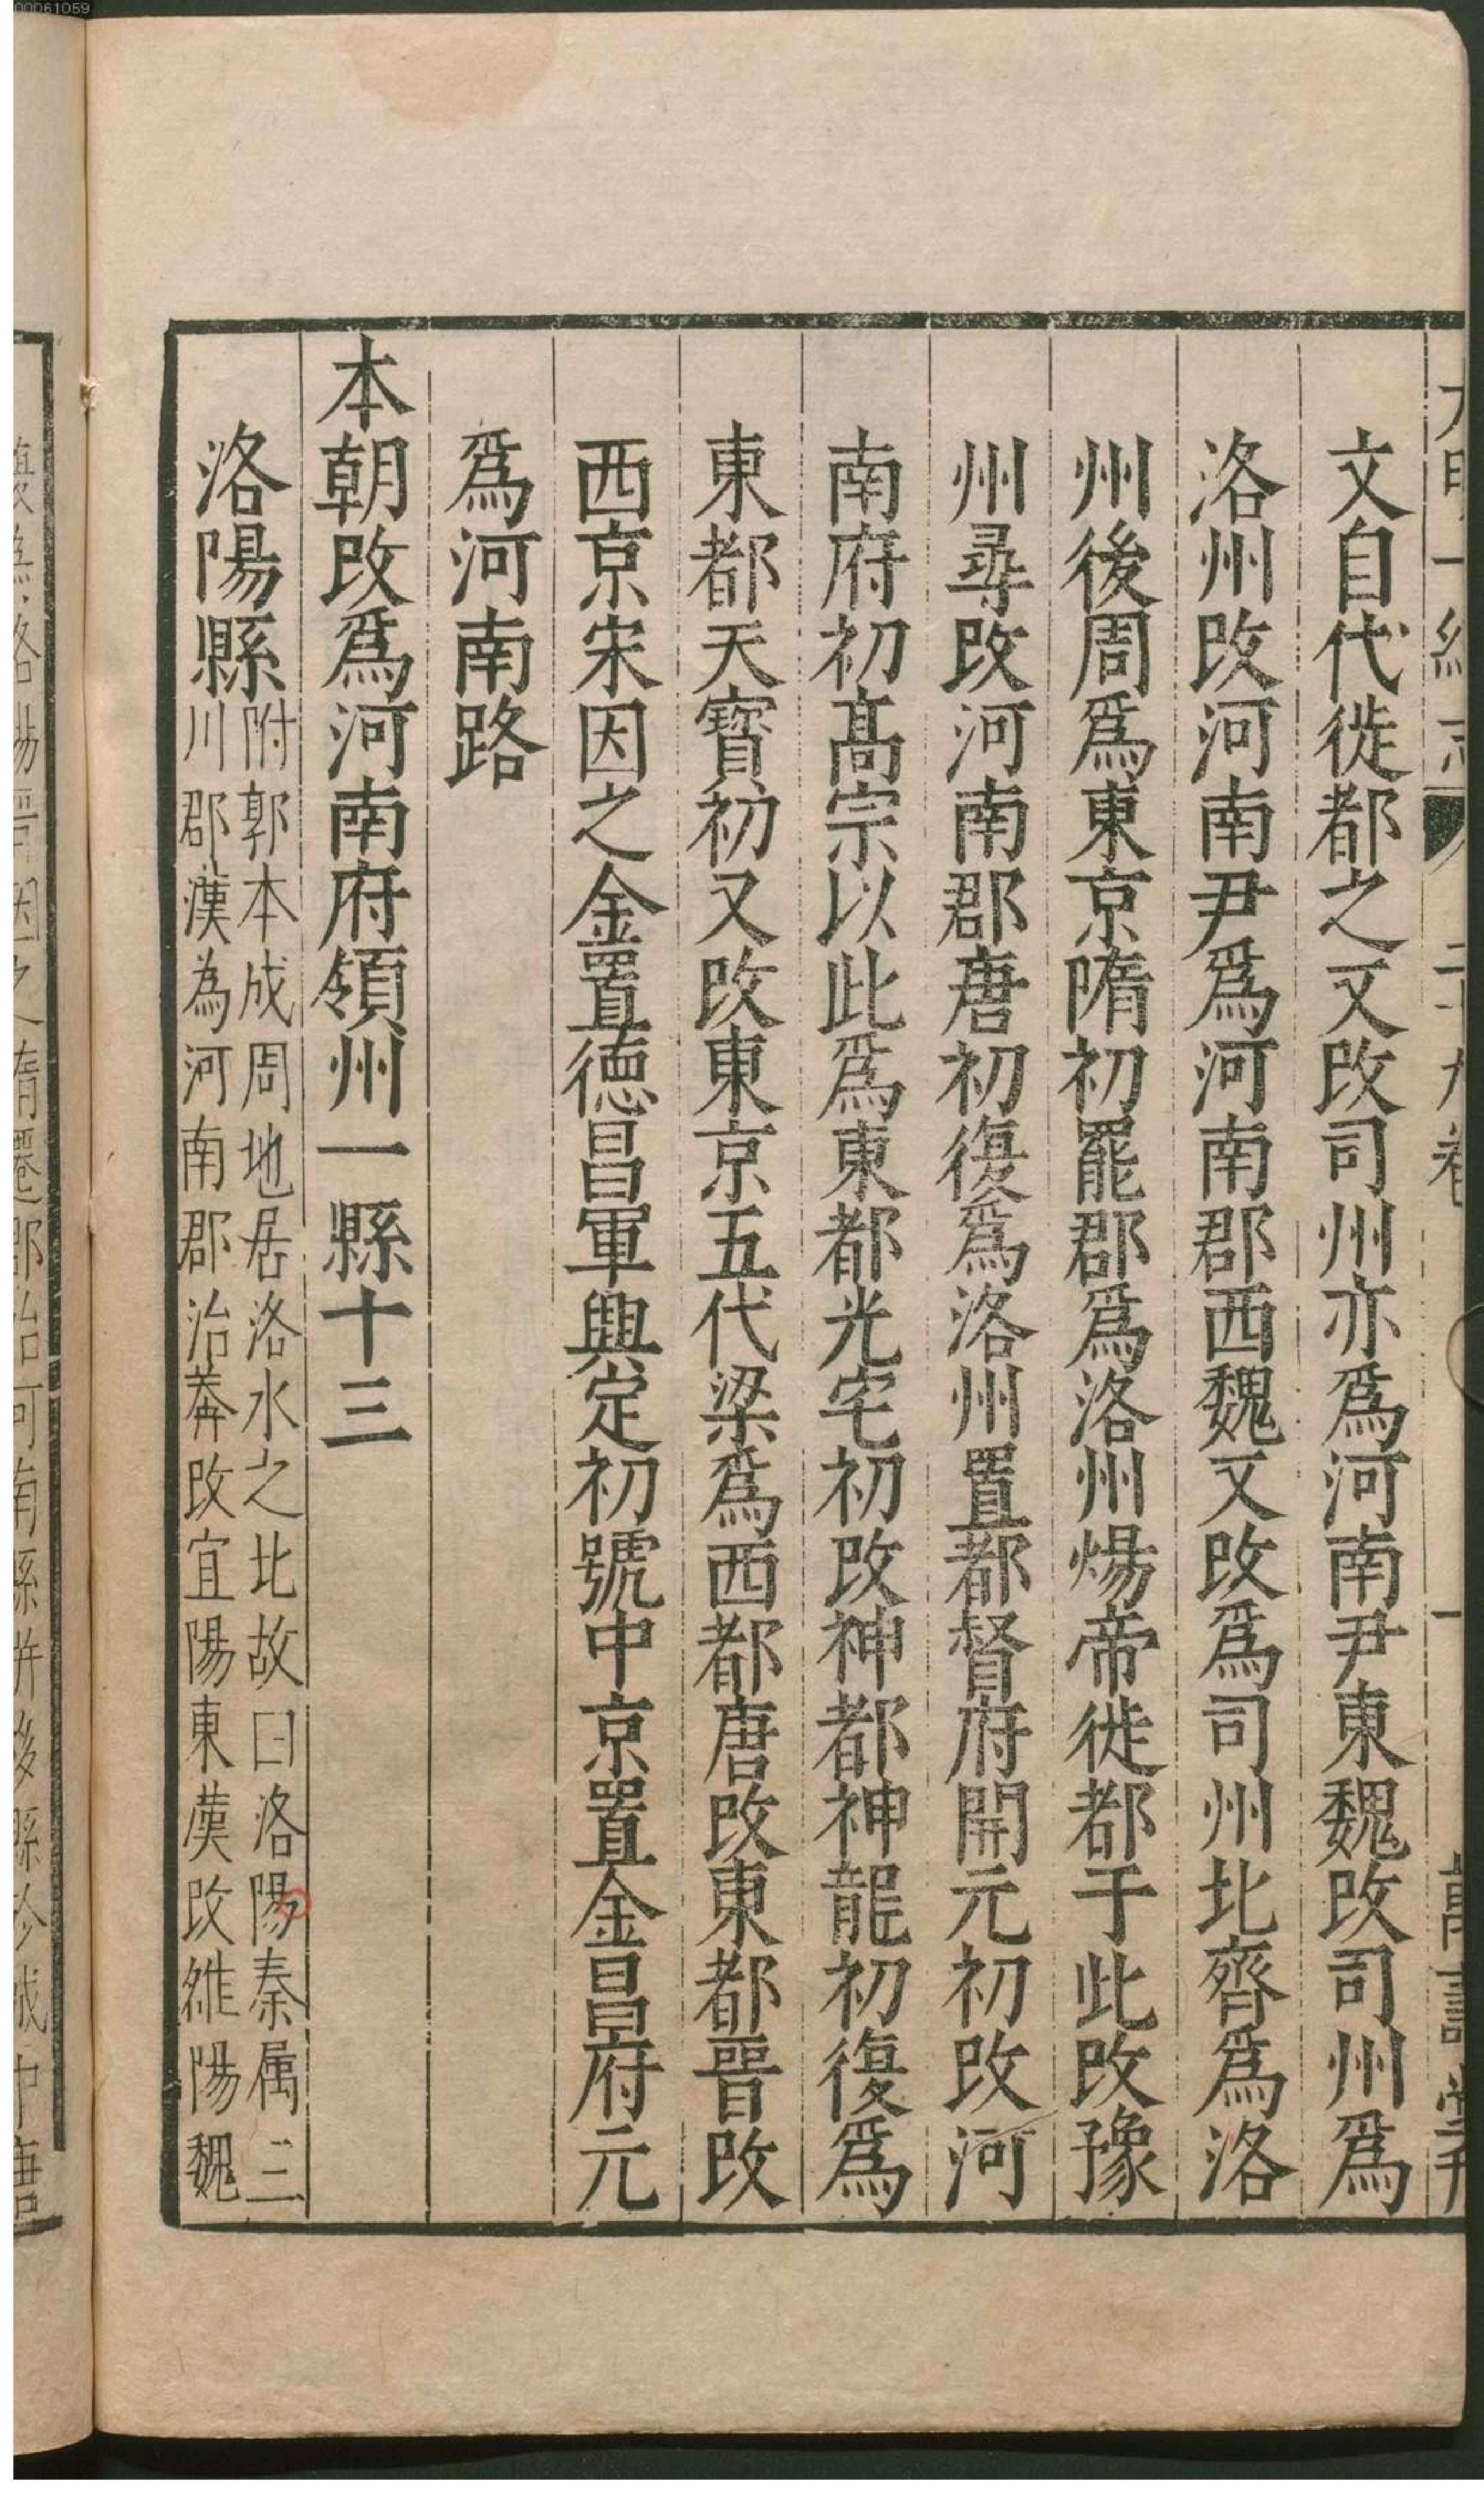 00061059
文自代徙都之又改司州亦爲河南尹東魏改司州爲
洛州改河南尹爲河南郡西魏又改爲司州北齊爲洛
州後周爲東京隋初罷郡爲洛州煬帝徙都于此改豫
州尋改河南郡唐初復爲洛州置都督府開元初改河
南府初高宗以此爲東都光宅初改神都神龍初復爲
東都天寳初又改東京五代梁爲西都唐改東都晉改
西京宋因之金置德昌軍興定初號中京置金昌府元
爲河南路
本朝改爲河南府領州一縣十三
洛陽縣
附郭本成周地居洛水之北故曰洛陽秦属三
川郡漢為河南郡治莽改宜陽東漢改雒陽魏